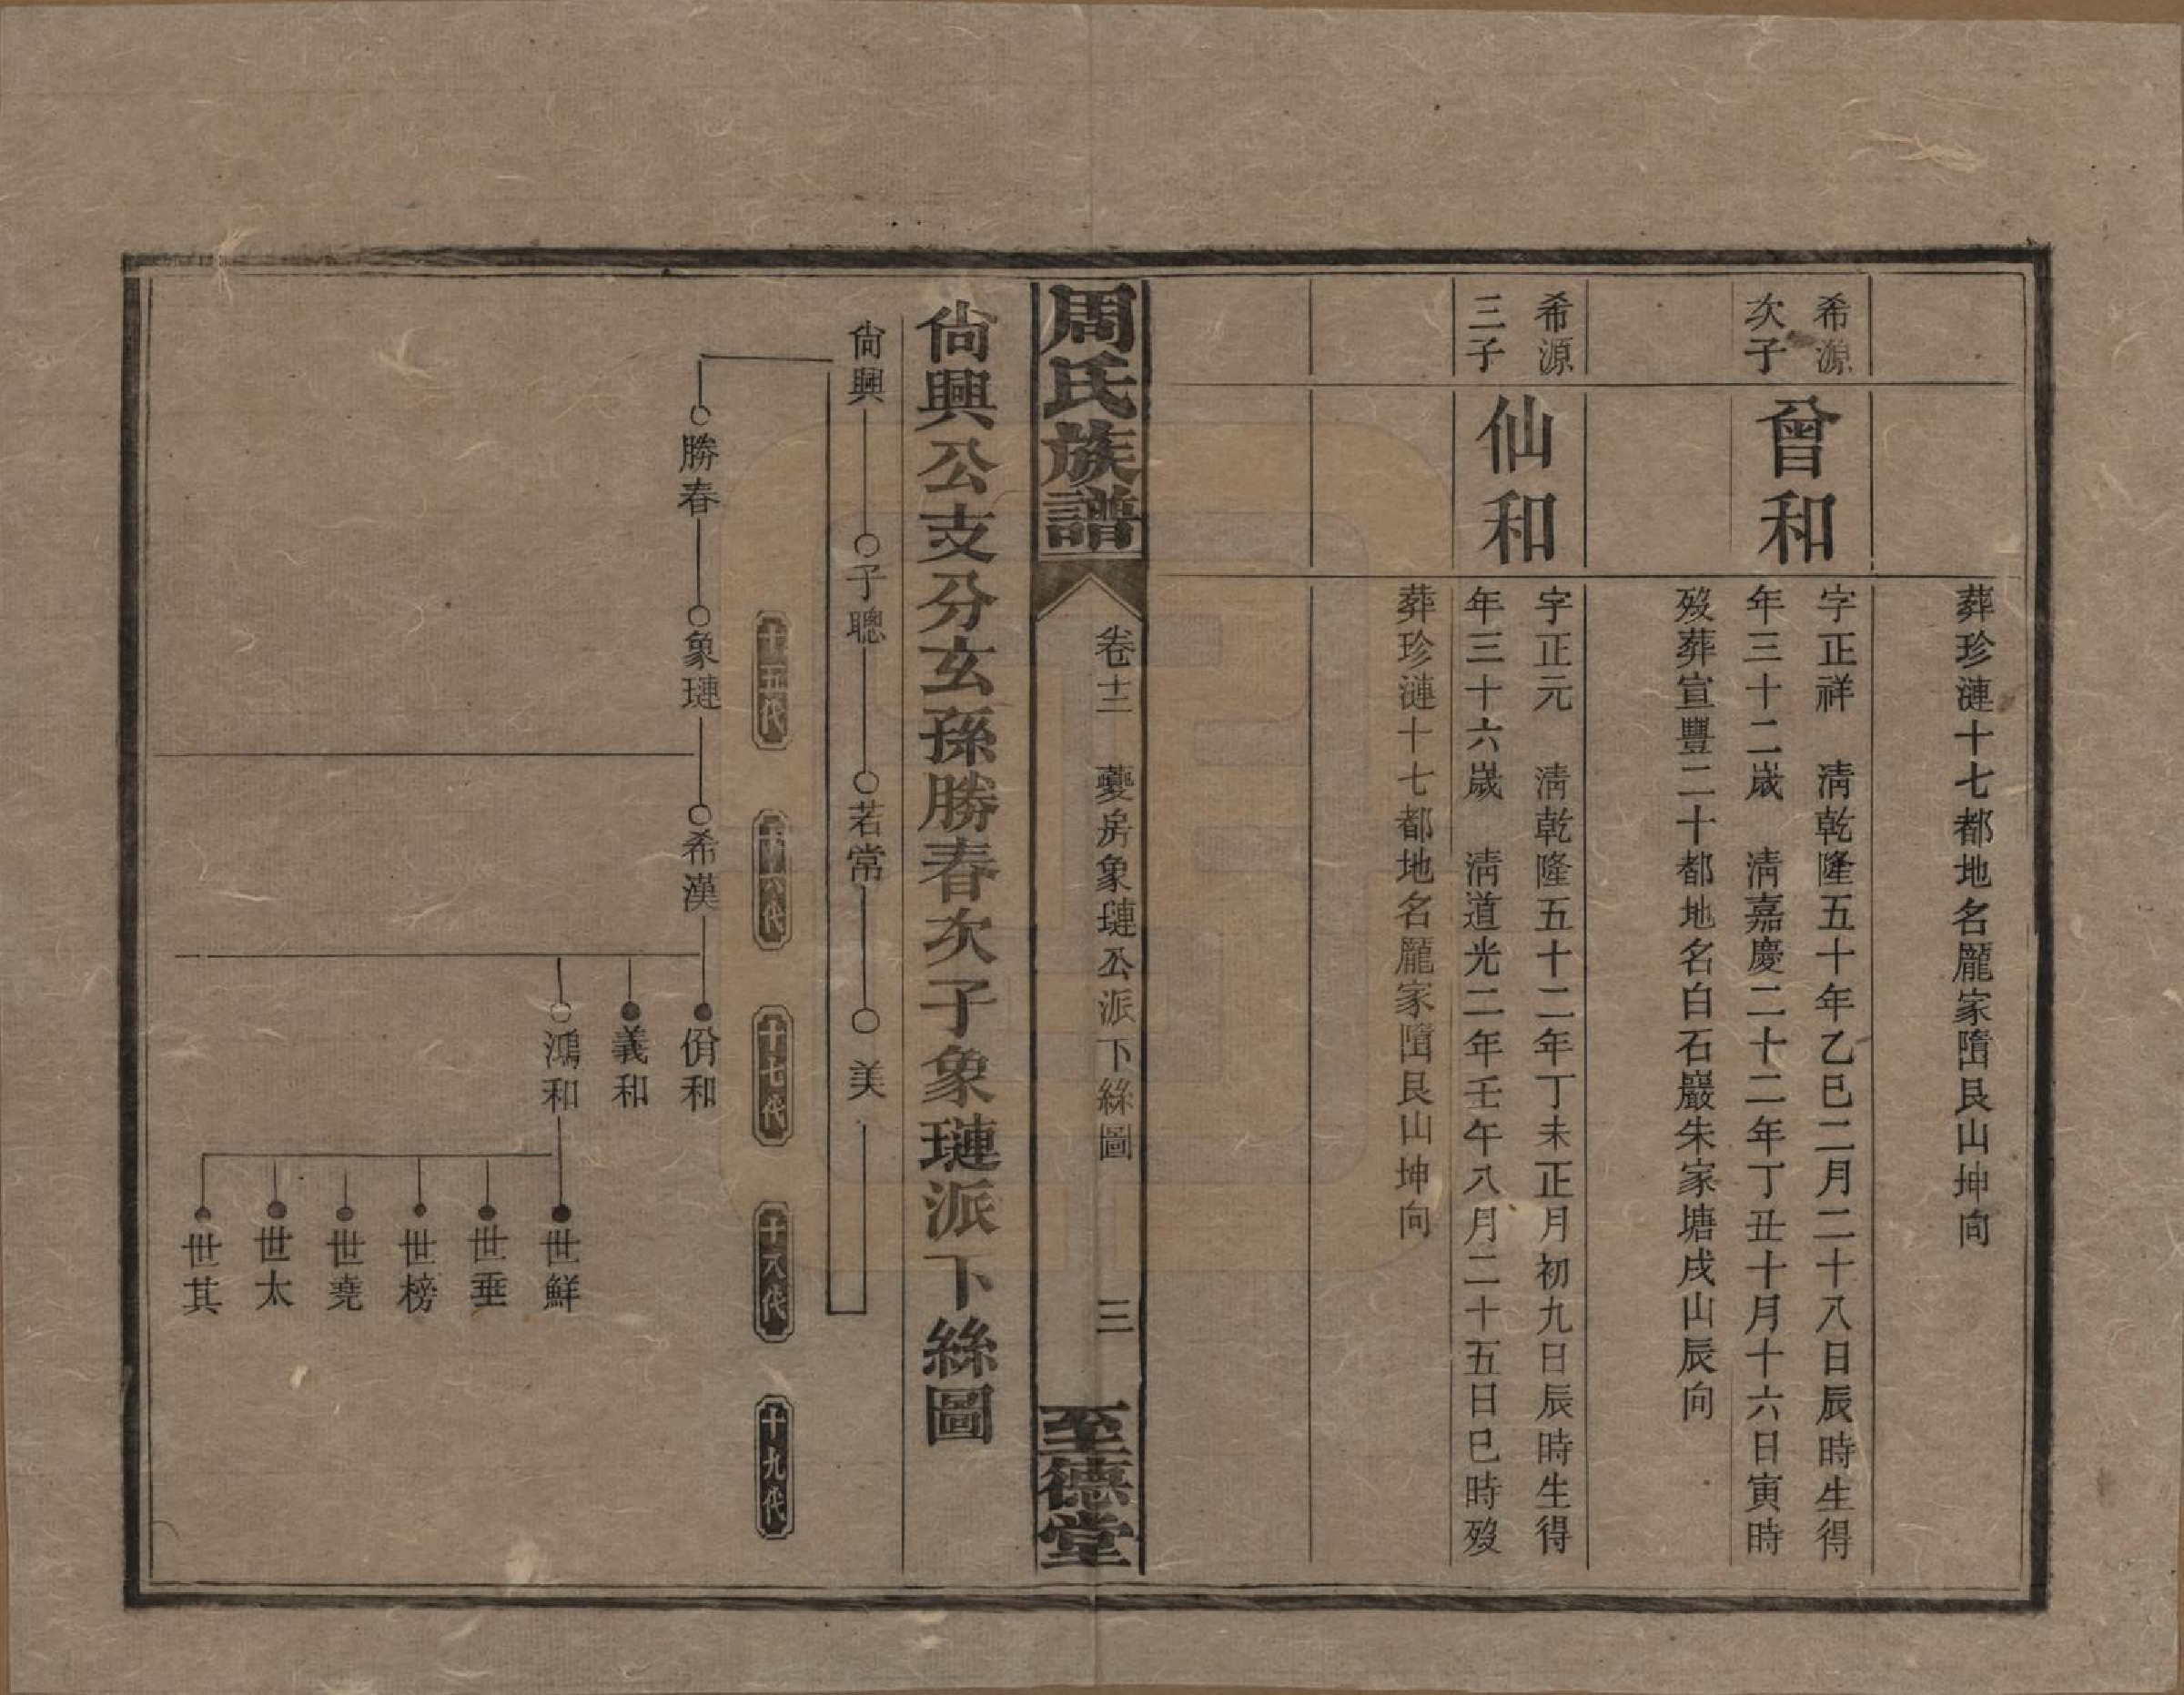 葬珍漣十七都地名龎家㙐艮山坤向
希源
次子
曾和
字正祥　淸乾隆五十年乙巳二月二十八日辰時生得
年三十二歲　淸嘉慶二十二年丁丑十月十六日寅時
歿葬宣豐二十都地名白石巖朱家塘戌山辰向
希源
三子
仙和
字正元　淸乾隆五十二年丁未正月初九日辰時生得
年三十六歲　淸道光二年壬午八月二十五日巳時歿
葬珍漣十七都地名龎家㙐艮山坤向
周氏族譜
卷十二　夔房象璉公派下絲圖　三
至德堂
尙興公支分玄孫勝春次子象璉派下絲圖
尙興　子聰　若常　美
十五代　十六代　十七代　十八代　十九代
勝春　象璉　希漢　佾和
義和
鴻和　世鮮
世垂
世榜
世堯
世太
世其